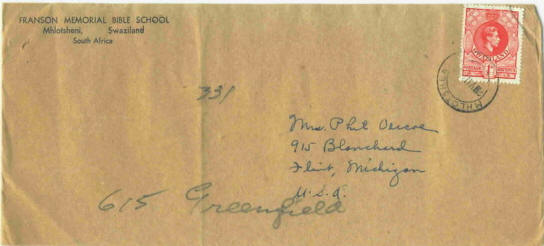 FRANSON MEMORIAL BIBLE SCHOOL
Mhlotsheni, Swaziland
South Africa
SWAZILAND
331
Mrs. Phil
915 Blanchard
Flint, Michigan
U.S.A.
615 Greenfield